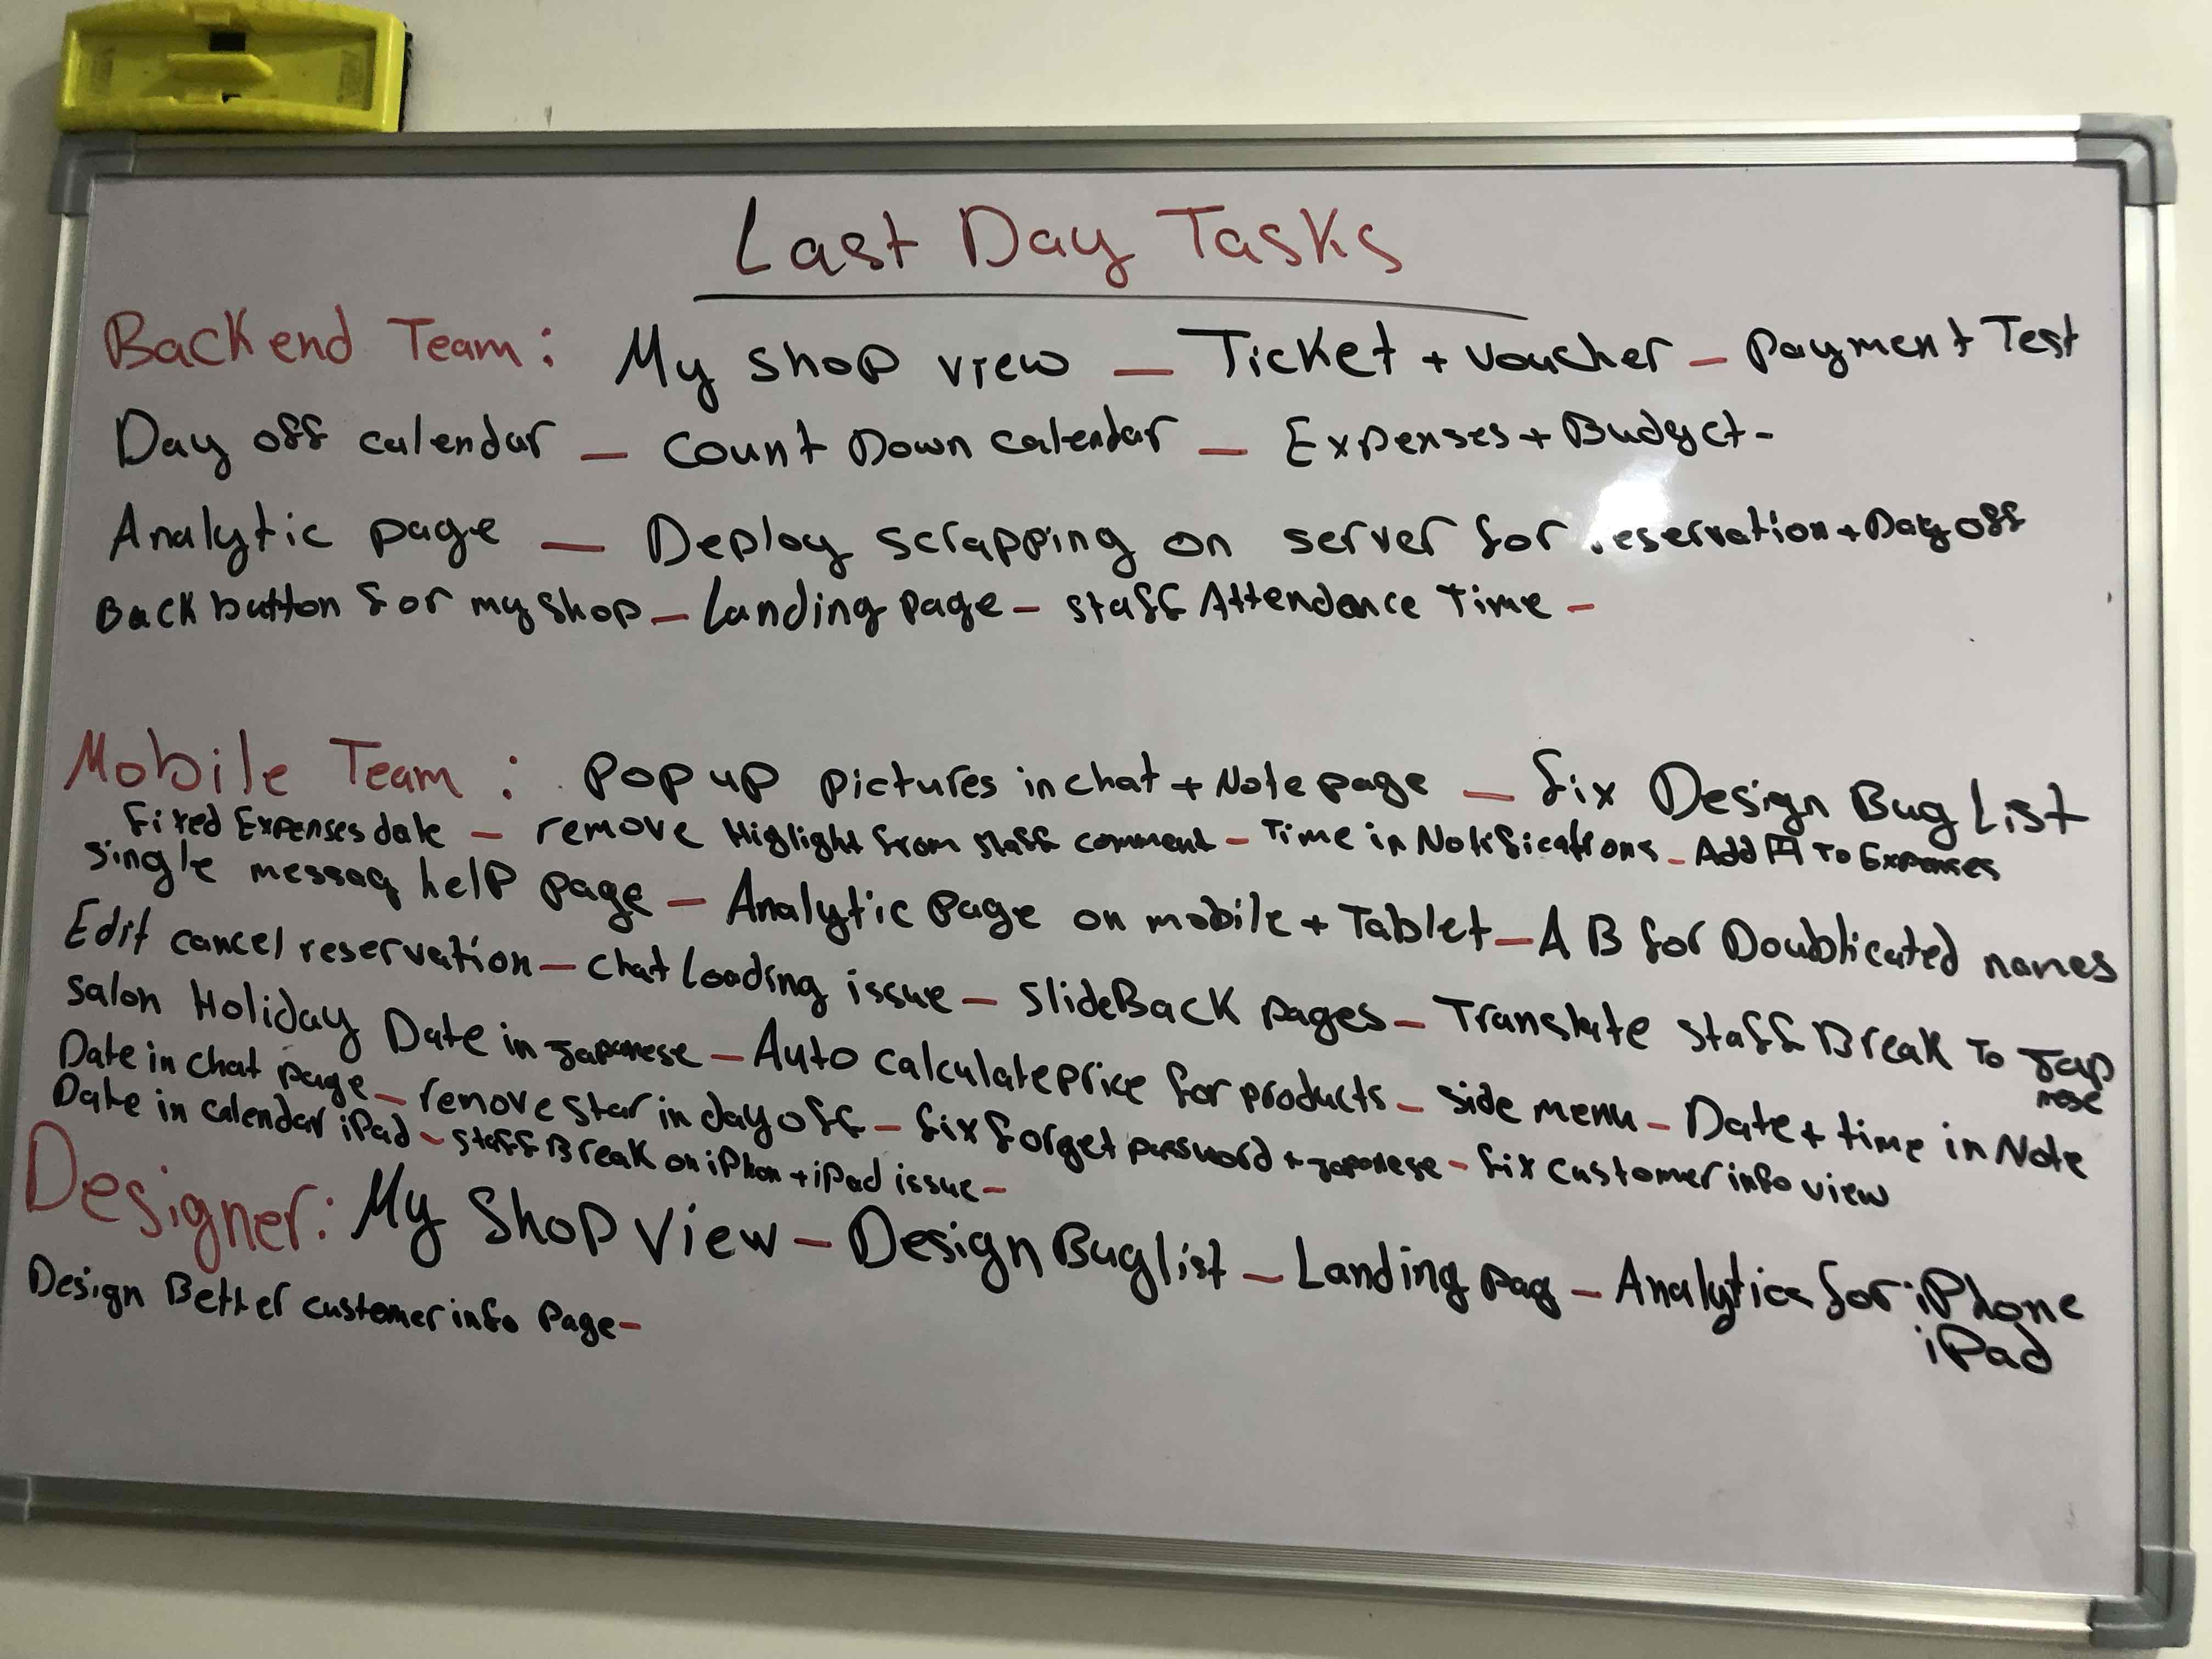 Last Day Tasks
Backend Team: My shop view — Ticket + voucher — payment Test
Day off calendar — count Down calendar — Expenses + Budget -
Analytic page — Deploy scrapping on server for reservation + Day off
Back button for my shop — Landing page — staff Attendance Time —
Mobile Team : Pop up pictures in chat + Note page — fix Design Bug List
Fixed Expenses date — remove Highlight from staff comment — Time in Notifications — Add 円 To Expenses
single messag help page — Analytic Page on mobile + Tablet — A B for Doublicated names
Edit cancel reservation — chat loading issue — slideBack pages — Translate staff Break To Jap
nese
salon Holiday Date in Japanese — Auto calculate price for products — side menu — Date + time in Note
Date in chat page — remove star in day off — fix forget password + Japanese — fix customer info view
Date in calendar iPad — staff Break on iPhon + iPad issue —
Designer: My Shop View — Design Bug list — Landing pag — Analytics for iPhone
iPad
Design Better customer info Page —